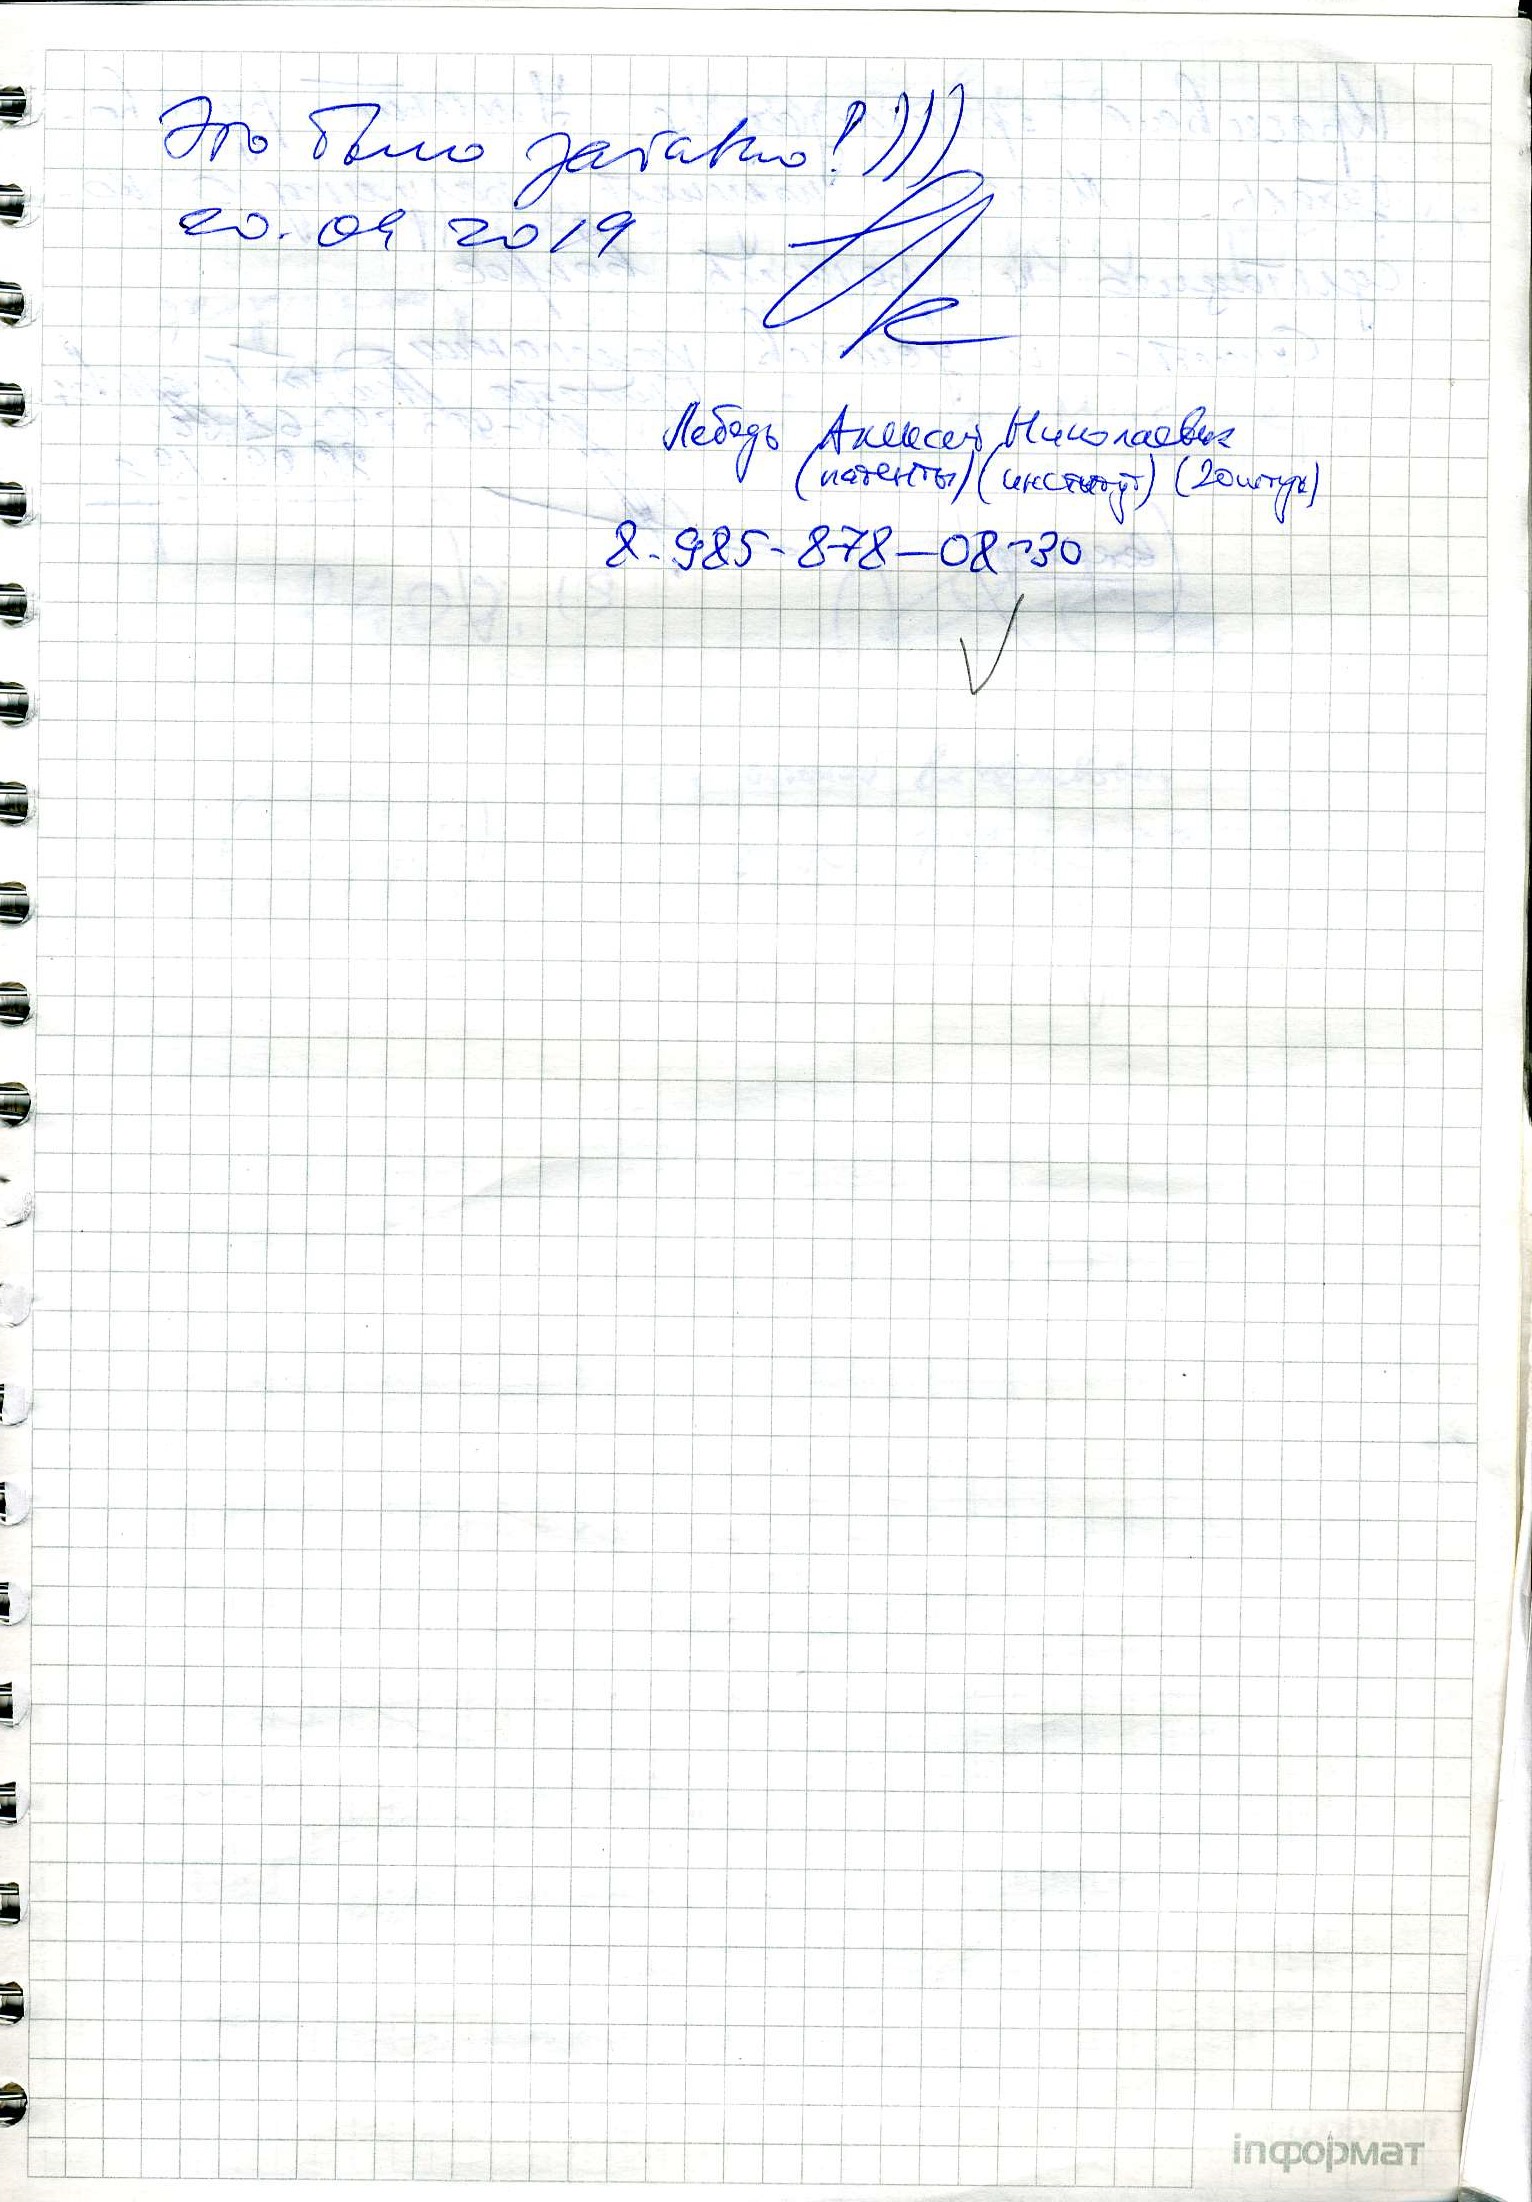 Это было забавно!)))
20.04 2019
Лебедь Алексей Николаевич
(патенты) (институт) (20 штук)
8-985-878-08-30
inформат